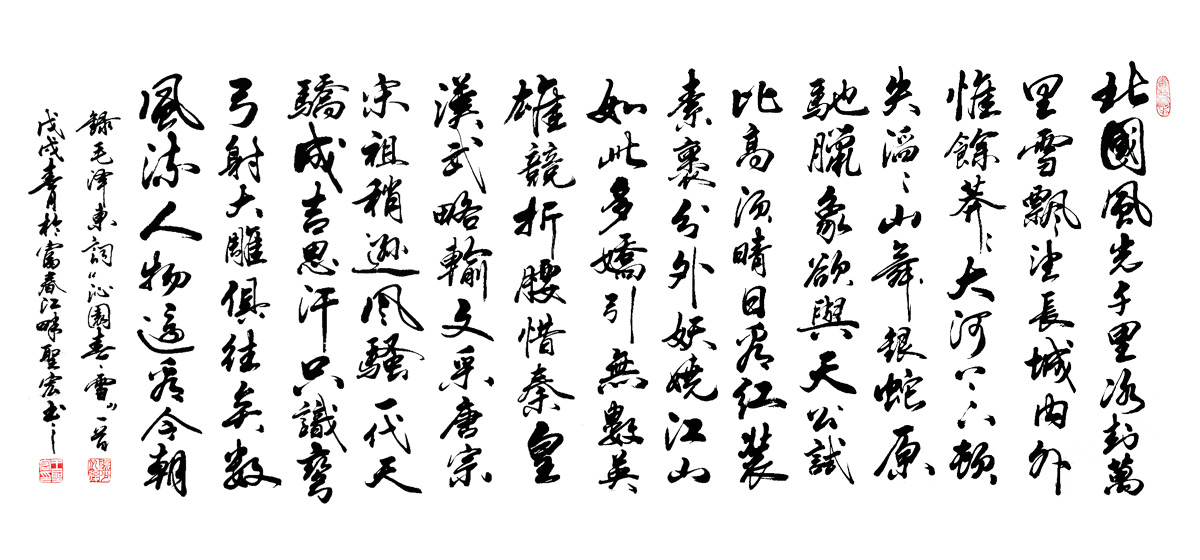 北國風光千里冰封萬
里雪飄望長城內外
惟餘莽〻大河上下頓
失滔〻山舞銀蛇原
馳臘象欲與天公試
比高須晴日看紅裝
素裹分外妖嬈江山
如此多嬌引無數英
雄競折腰惜秦皇
漢武略輸文采唐宗
宋祖稍遜风騷一代天
驕成吉思汗只識彎
弓射大雕俱往矣数
風流人物還看今朝
錄毛澤東詞“沁園春·雪”一首
戊戌春月於富春江畔聖宏书之